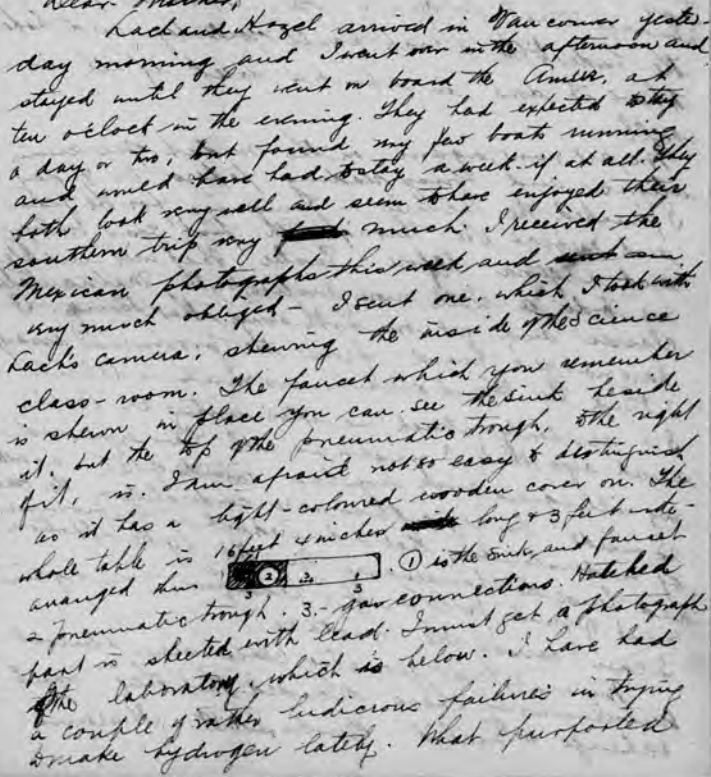 Dear Mother,
Lach and Hazel arrived in Vancouver yester-
day morning and I went over in the afternoon and
stayed until they went on board the Amur, at
ten o'clock in the evening. They had expected to stay
a day or two, but found very few boats running
and would have had to stay a week if at all. They
both look very well and seem to have enjoyed their
southern trip very much. I received the
Mexican photographs this week and
very much obliged - I sent one, which I took with
Lach's camera, shewing the inside of the science
class-room. The faucet which you remember
is shewn in place you can see the sink beside
it, but the top of the pneumatic trough, to the right
of it, is, I am afraid not so easy to distinguish
as it has a light-coloured wooden cover on. The
whole table is 16 feet inches long & 3 feet wide -
arranged thus 1 2 3 3 3 . ① is the sink, and faucet
2 pneumatic trough. 3. - gas connections. Hatched
part is sheeted with lead. I must get a photograph
of the laboratory, which is below. I have had
a couple of rather ludicrous failures in trying
to make hydrogen lately. What purported